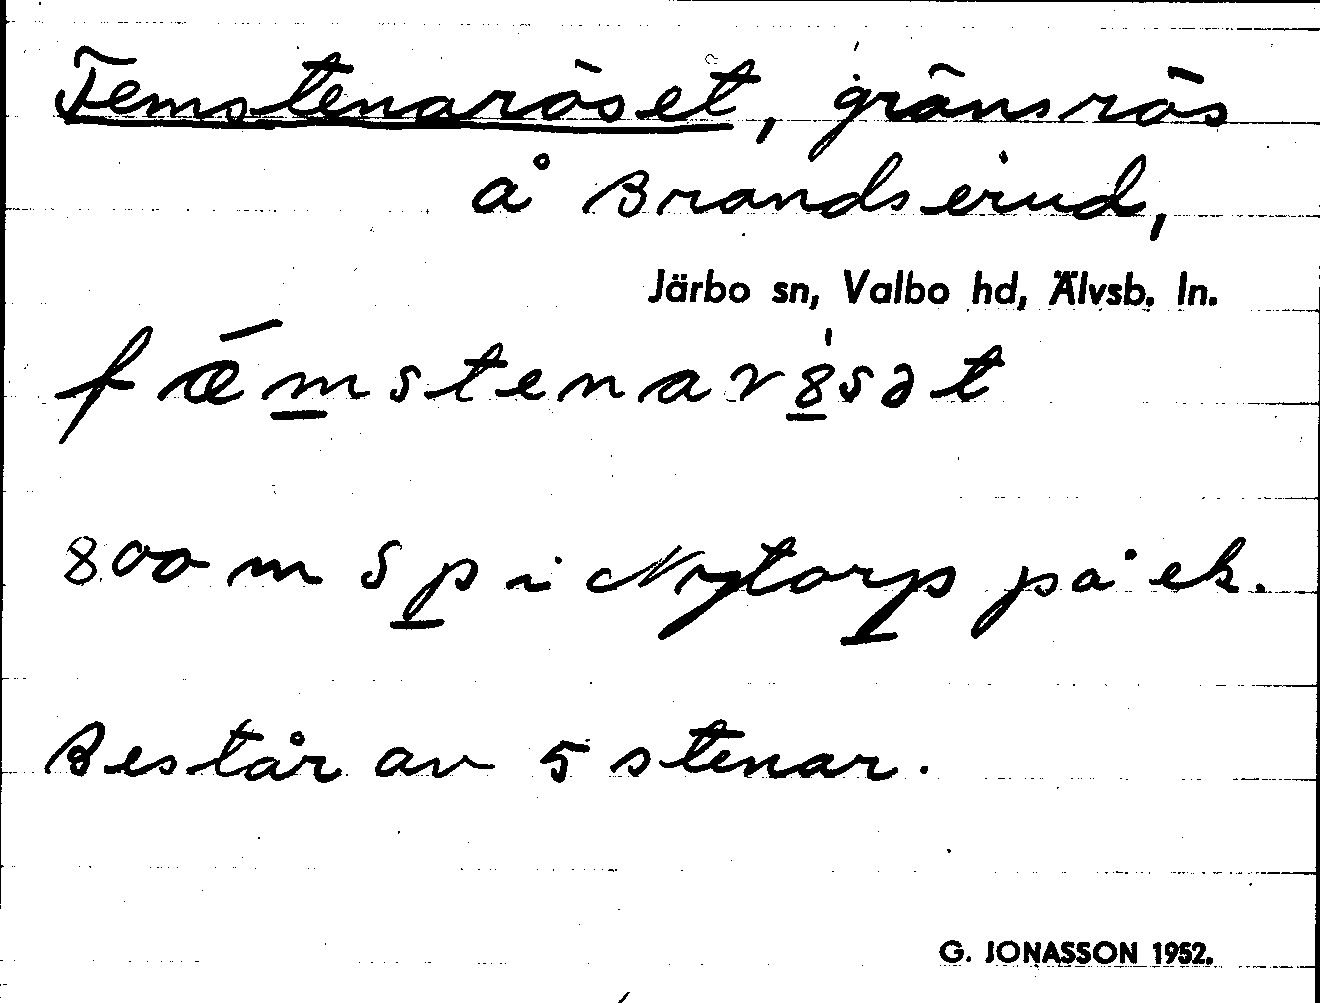 Femstenaröset, gränsrös
å Brandserud,
Järbo sn, Valbo hd, Älvsb. ln.
fǽmstenarösət
800 m S p i Nytorp på ek.
Består av 5 stenar.
G. JONASSON 1952.